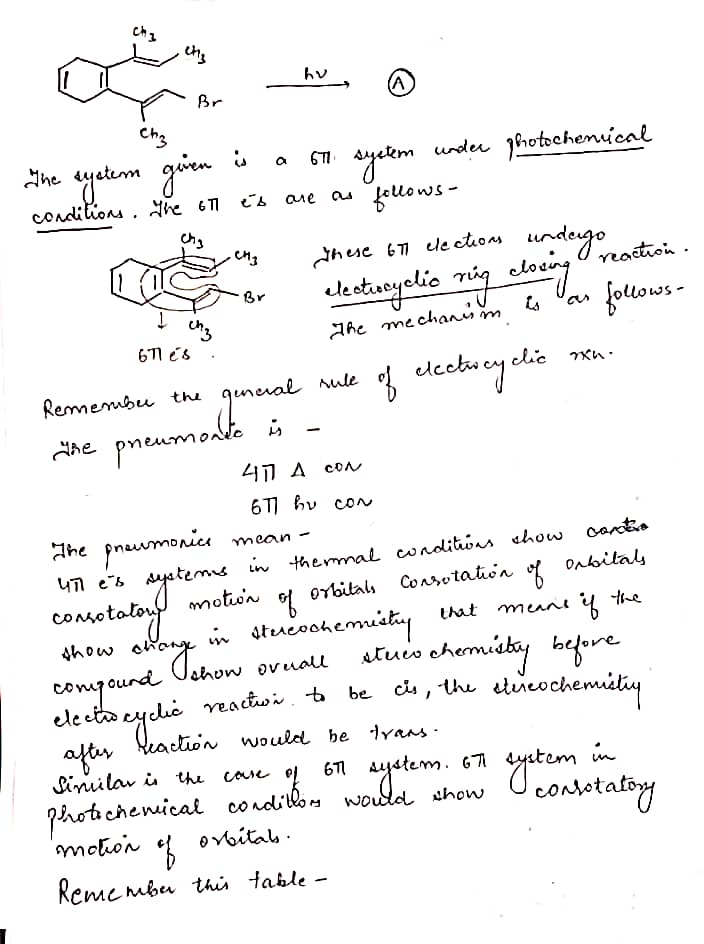 CH3
CH3
Br
CH3
hν
A
The system given is a 6π system under photochemical
conditions. The 6π e⁻s are as follows-
CH3
CH3
Br
CH3
6π e⁻s
These 6π electrons undergo
electrocyclic ring closing reaction.
The mechanism is as follows-
Remember the general rule of electrocyclic rxn.
The pneumonic is -
4π Δ con
6π hν con
The pneumonics mean -
4π e⁻s systems in thermal conditions show
conrotatory motion of orbitals Conrotation of orbitals
show change in stereochemistry that means if the
compound show overall stereochemistry before
electrocyclic reaction to be cis, the stereochemistry
after reaction would be trans.
Similar is the case of 6π system. 6π system in
photochemical conditions would show conrotatory
motion of orbitals.
Remember this table -